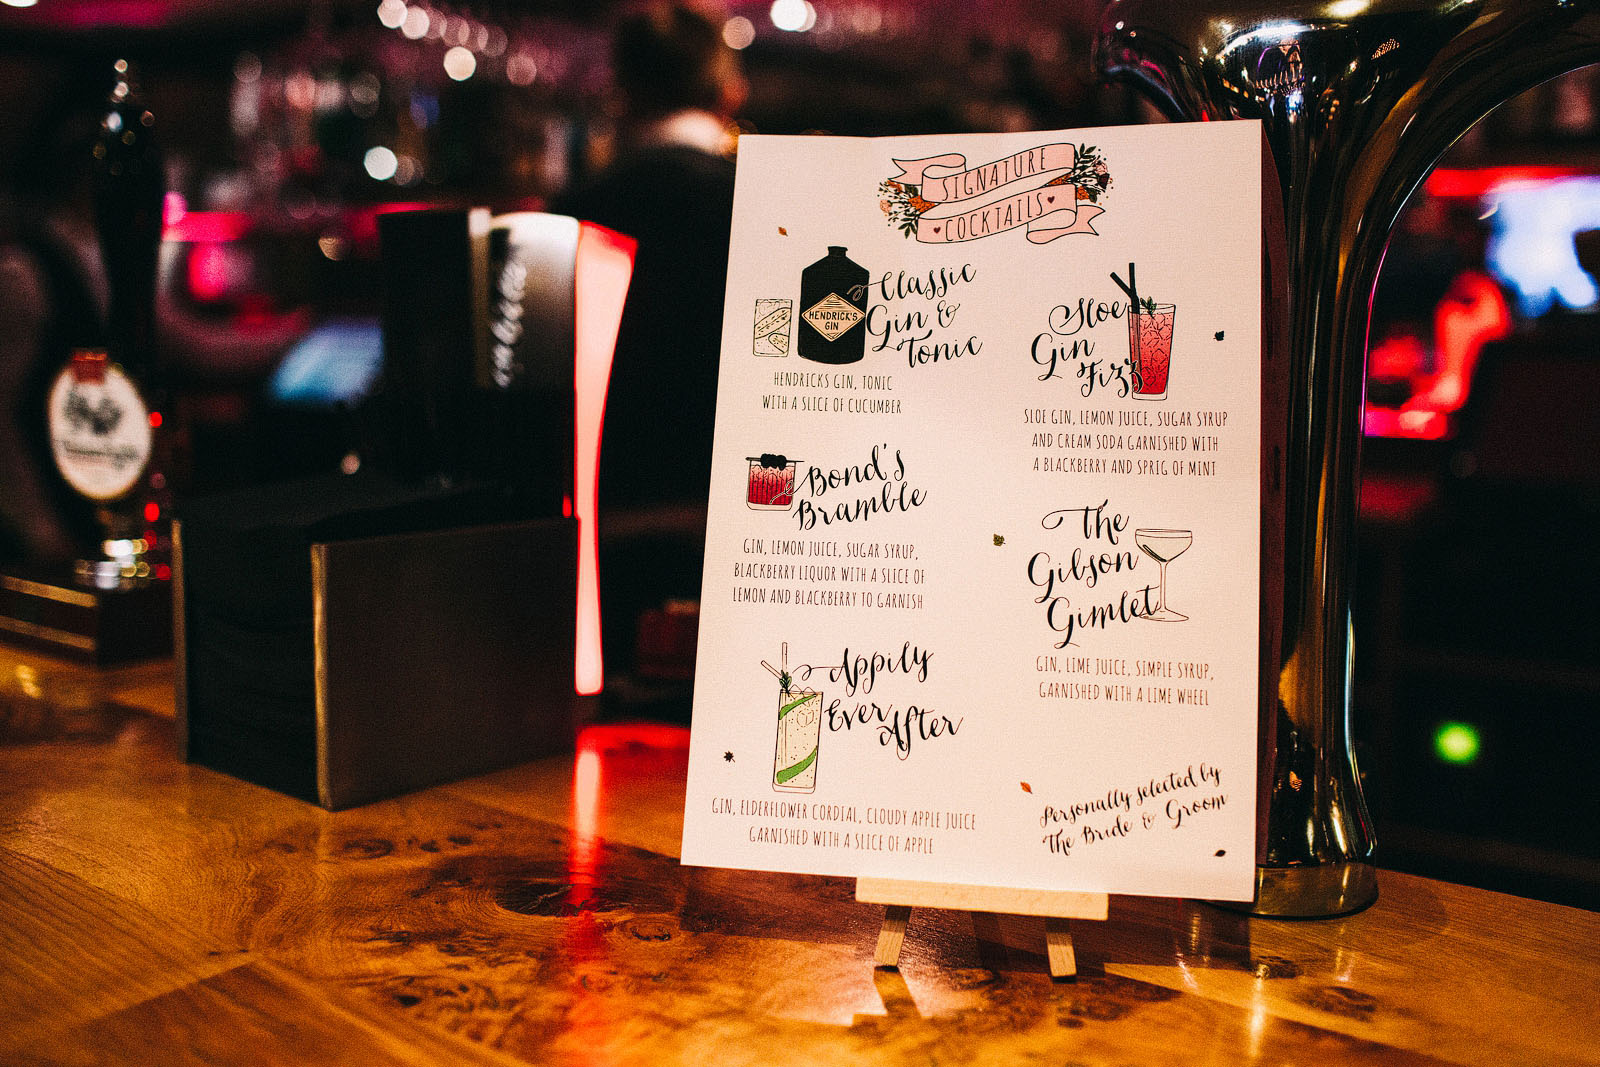 SIGNATURE
COCKTAILS
HENDRICK'S
GIN
Classic
Gin &
Tonic
HENDRICKS GIN, TONIC
WITH A SLICE OF CUCUMBER
Bond's
Bramble
GIN, LEMON JUICE, SUGAR SYRUP,
BLACKBERRY LIQUOR WITH A SLICE OF
LEMON AND BLACKBERRY TO GARNISH
Appily
Ever After
GIN, ELDERFLOWER CORDIAL, CLOUDY APPLE JUICE
GARNISHED WITH A SLICE OF APPLE
Sloe
Gin
Fizz
SLOE GIN, LEMON JUICE, SUGAR SYRUP
AND CREAM SODA GARNISHED WITH
A BLACKBERRY AND SPRIG OF MINT
The
Gibson
Gimlet
GIN, LIME JUICE, SIMPLE SYRUP,
GARNISHED WITH A LIME WHEEL
Personally selected by
The Bride & Groom